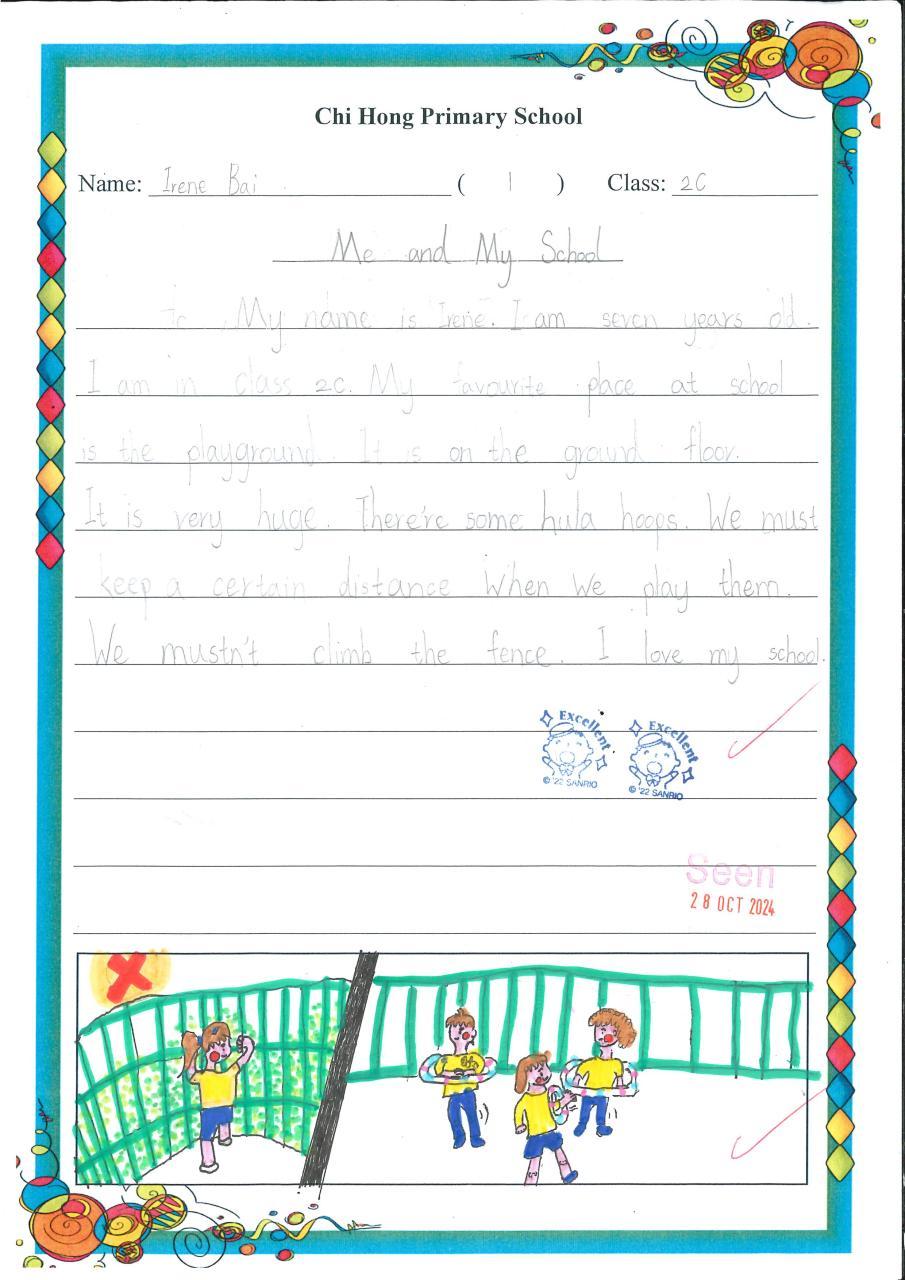 Chi Hong Primary School
Name: Irene Bai ( 1 ) Class: 2C
Me and My School
My name is Irene. I am seven years old.
I am in class 2C. My favourite place at school
is the playground. It is on the ground floor.
It is very huge. There're some hula hoops. We must
keep a certain distance when we play them.
We mustn't climb the fence. I love my school.
Excellent Excellent
© '22 SANRIO © '22 SANRIO
Seen
28 OCT 2024